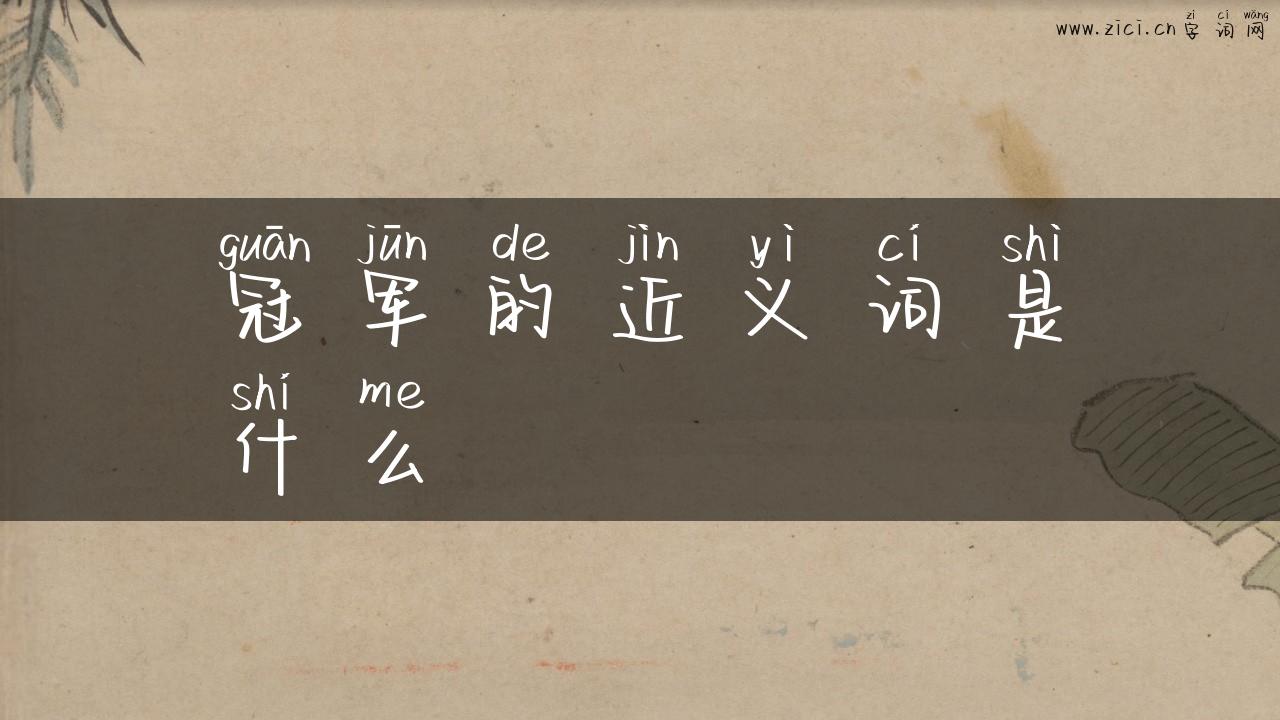 zì cí wǎng
www.zici.cn 字词网
guān jūn de jìn yì cí shì
冠军的近义词是
shí me
什么